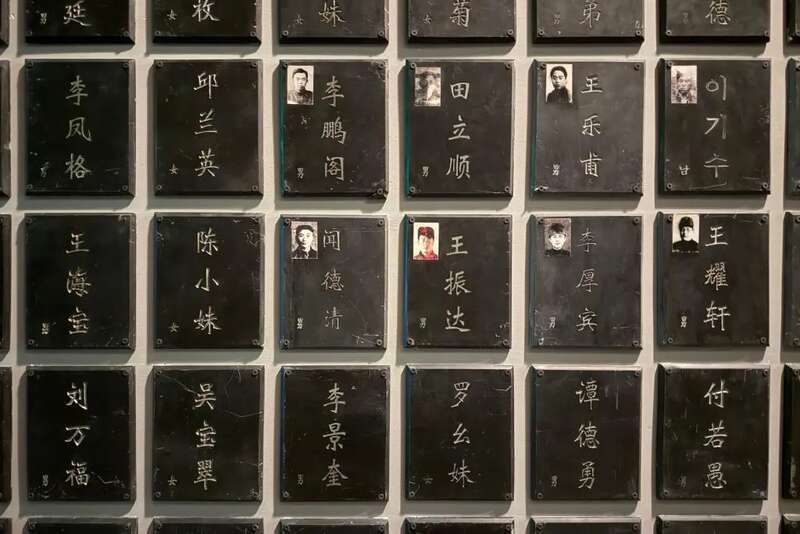 延
妹
菊
弟
德
李凤格
女
邱兰英
女
李鹏阁
男
田立顺
男
王乐甫
男
이기수
남
王海宝
男
陈小妹
女
闻德清
男
王振达
男
李厚宾
男
王耀轩
男
刘万福
男
吴宝翠
女
李景奎
男
罗幺妹
女
谭德勇
男
付若愚
男